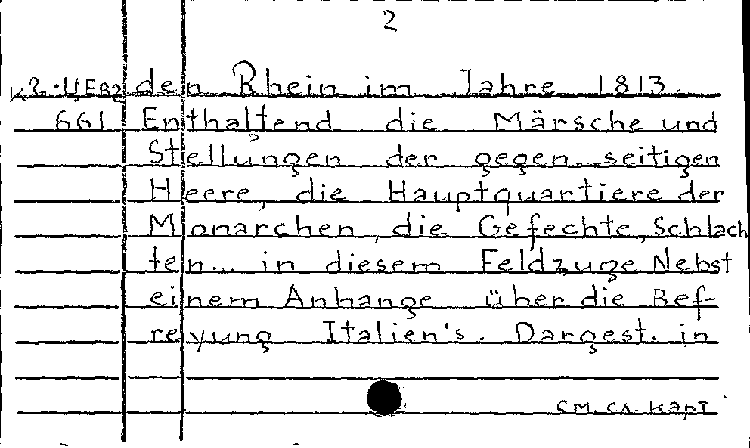 2
den Rhein im Jahre 1813.
661 Enthaltend die Märsche und
Stellungen der gegen seitigen
Heere, die Hauptquartiere der
Monarchen, die Gefechte, Schlach
ten... in diesem Feldzuge Nebst
einem Anhange über die Bef-
reyung Italien's. Dargest. in